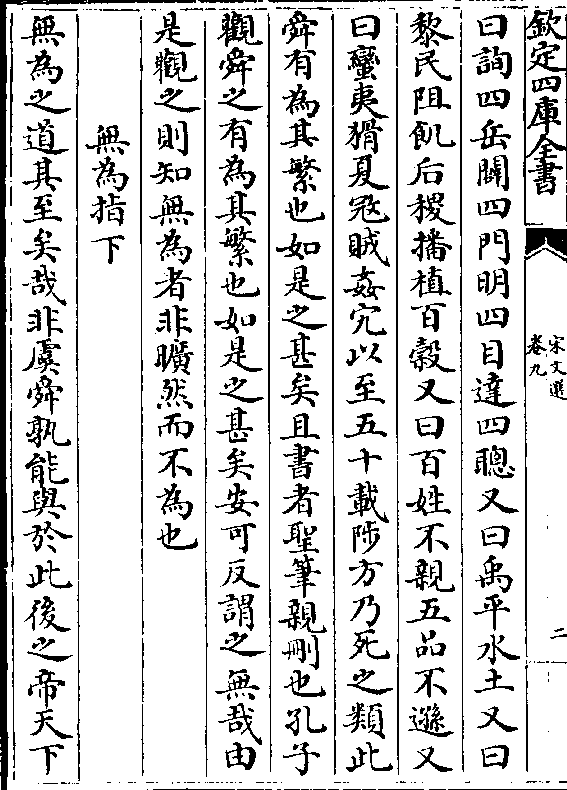 欽定四庫全書
宋文選
卷九
二
曰詢四岳闢四門明四目達四聰又曰禹平水土又曰
黎民阻飢后稷播植百穀又曰百姓不親五品不遜又
曰蠻夷猾夏冦賊姦宄以至五十載陟方乃死之類此
舜有為其繁也如是之甚矣且書者聖筆親刪也孔子
觀舜之有為其繁也如是之甚矣安可反謂之無哉由
是觀之則知無為者非曠然而不為也
無為指下
無為之道其至矣哉非虞舜孰能與於此後之帝天下